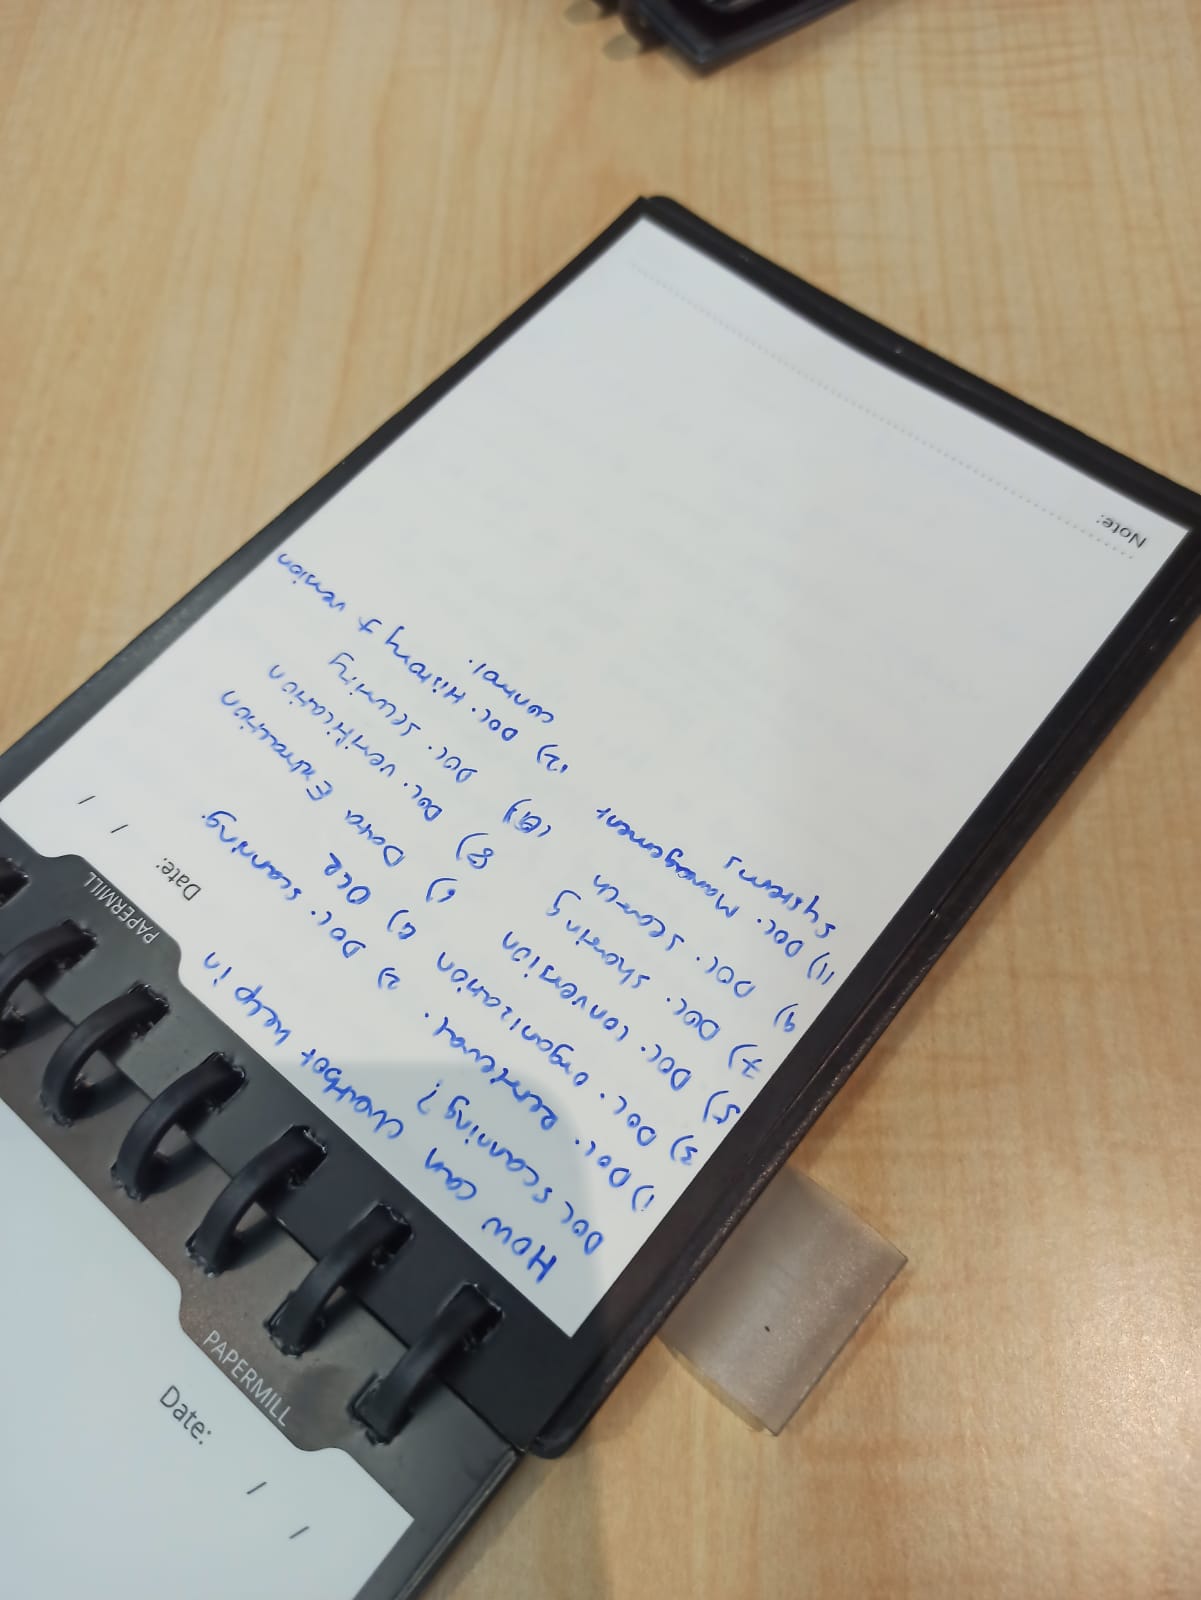 PAPERMILL
Date: / /
How can chatbot help in
Doc scanning?
1) Doc. Retrieval. 2) Doc. scanning.
3) Doc. organization 4) OCR
5) Doc. conversion 6) Data Extraction
7) Doc. sharing 8) Doc. verification
9) Doc. search 10) Doc. security
11) Doc. Management system 12) Doc. History & version control.
Note:
PAPERMILL
Date: / /